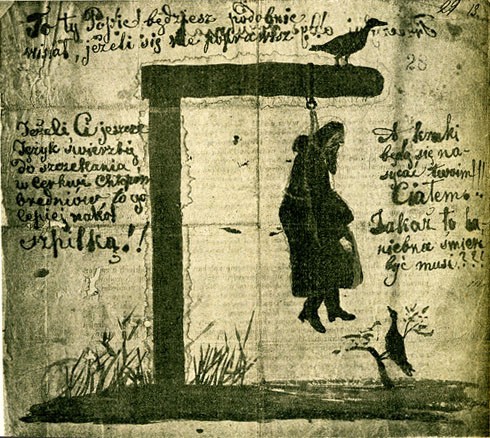 To ty Popie! będziesz podobnie
wisiał, jeżeli się nie poprawisz
28
Jeżeli Ci jeszcze
Język swierzbą
Do szczekania
w Cerkwi Chłopom
bredniów, to go
lepiej nakol
szpilką!!
A kruki
będą się na-
sycać twoim!!!
Ciałem..
Jakaż to ha-
niebna śmierć
być musi???